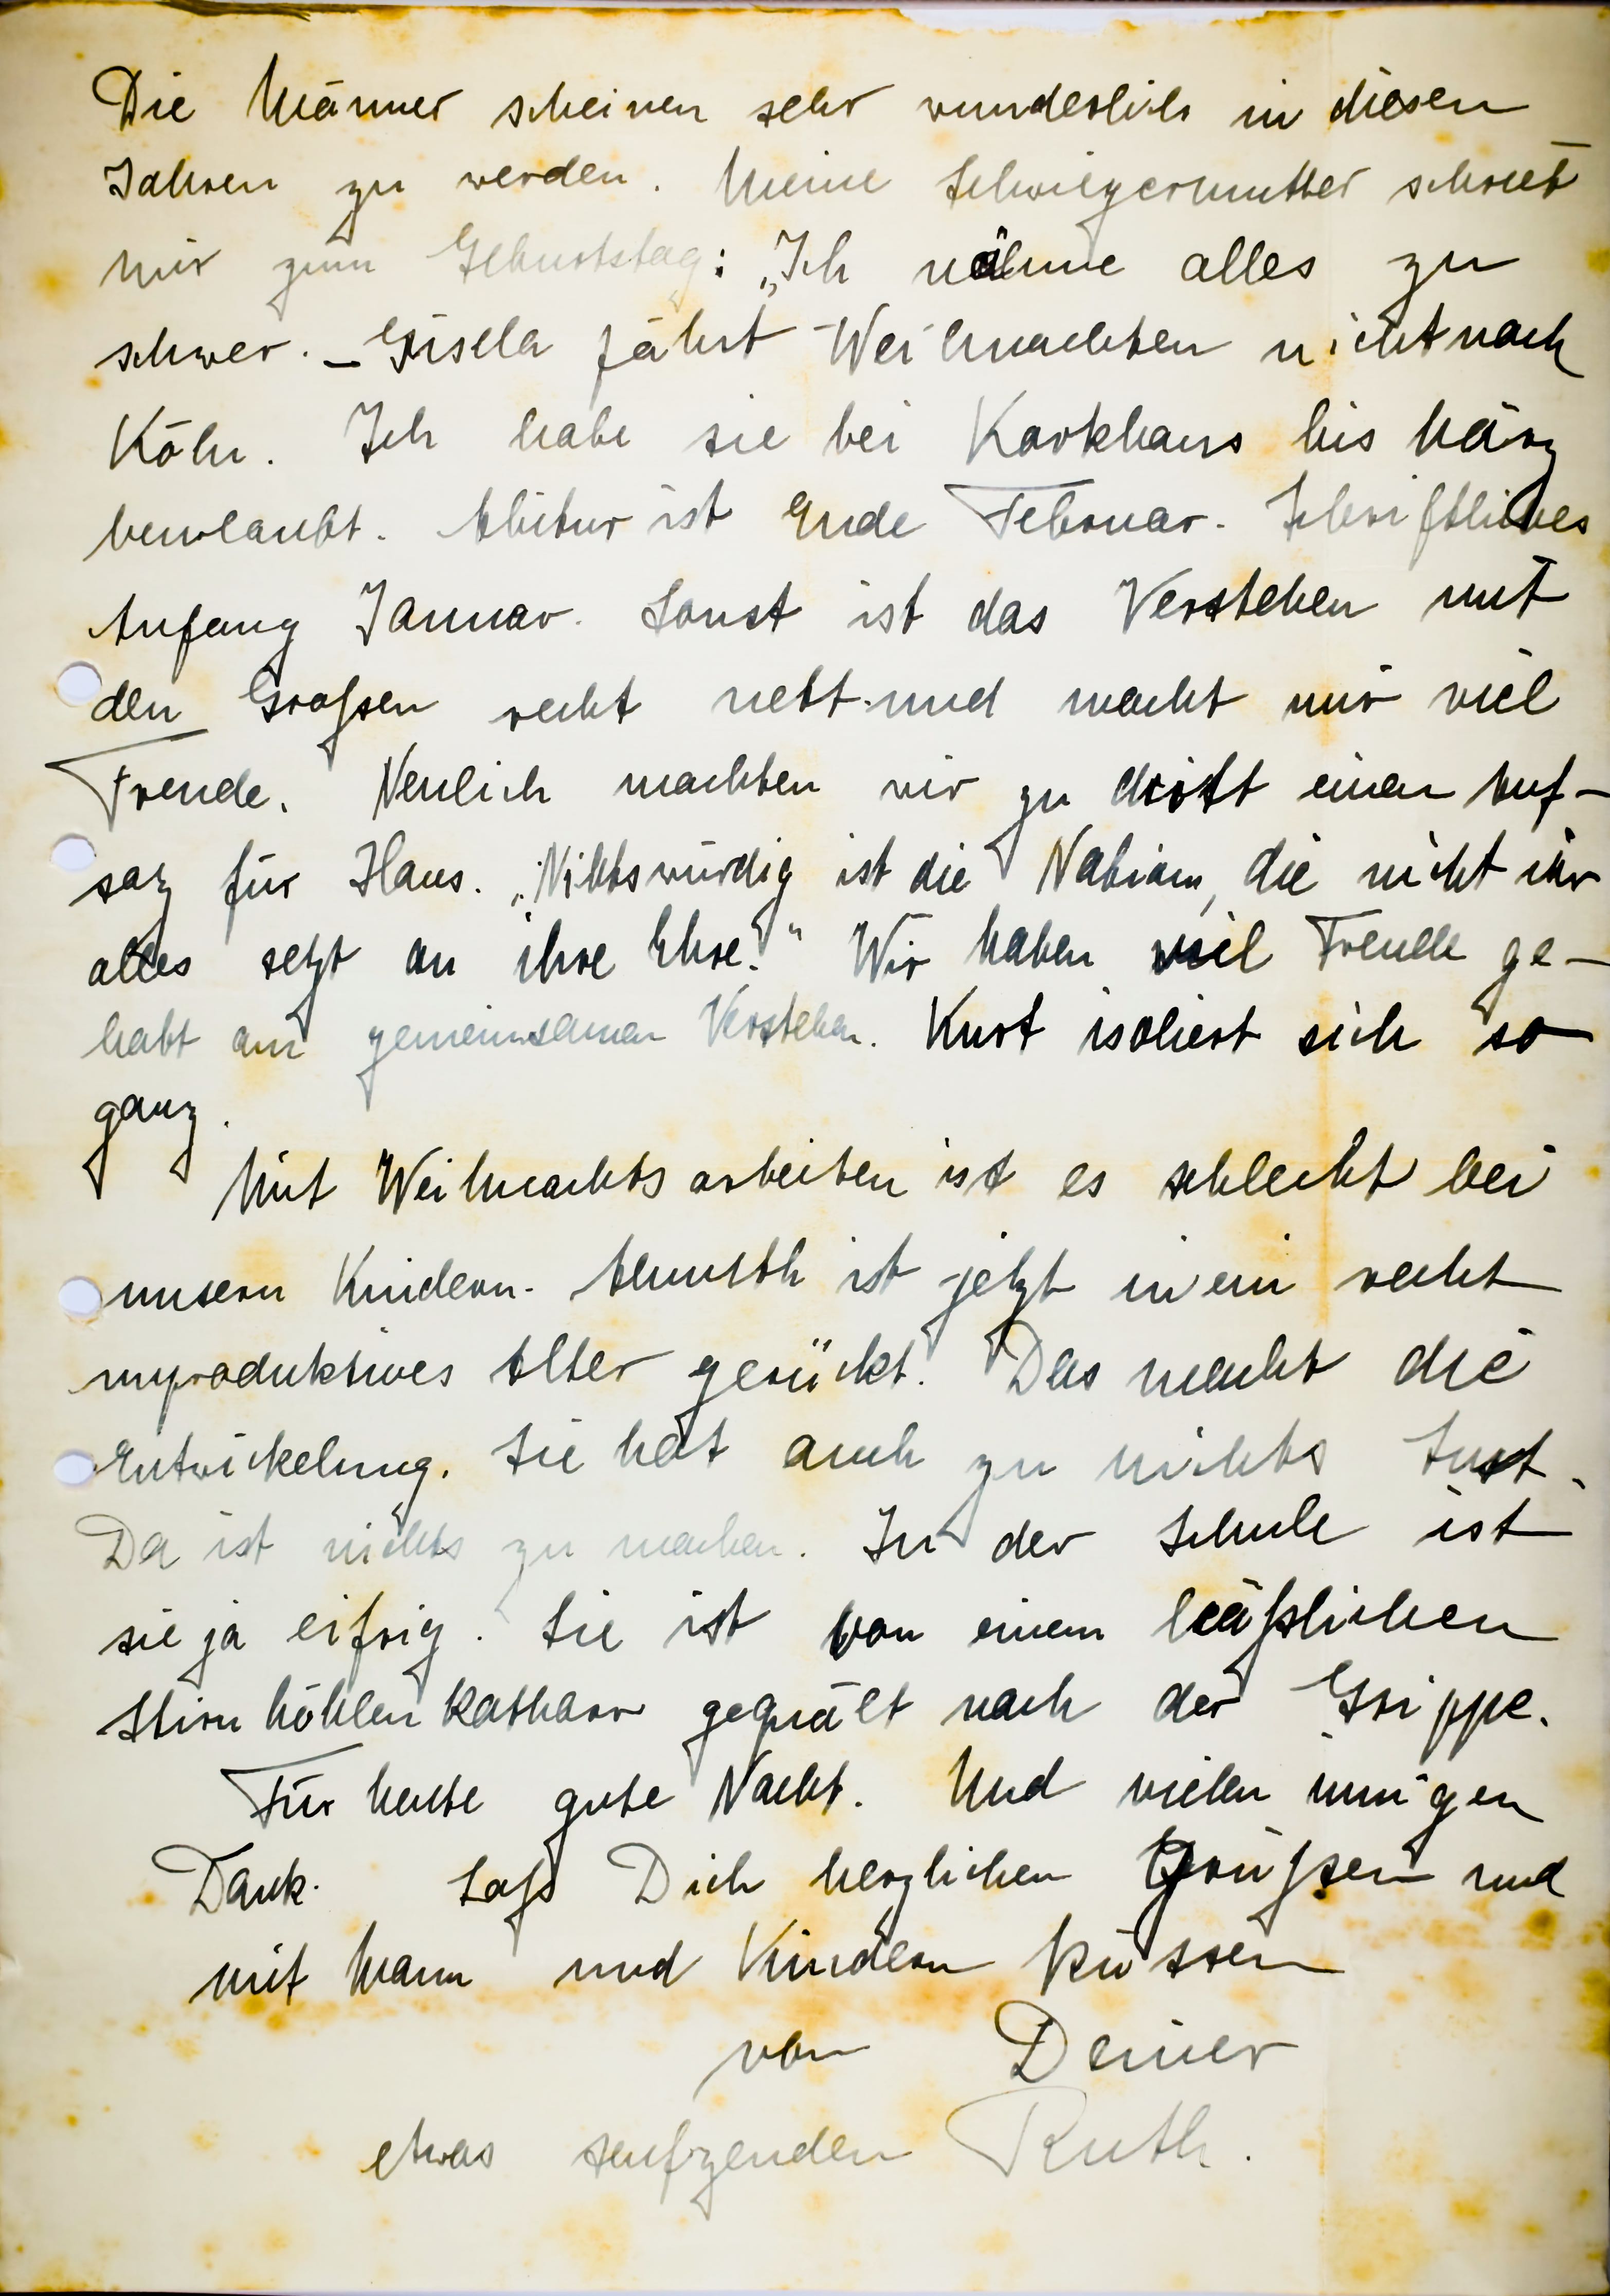 Die Männer scheinen sehr wunderlich in diesen
Jahren zu werden. Meine Schwiegermutter schrieb
mir zum Geburtstag: „Ich nähme alles zu
schwer. – Gisela fährt Weihnachten nicht nach
Köln. Ich habe sie bei Karkhaus bis März
beurlaubt. Abitur ist Ende Februar. Schriftliches
Anfang Januar. Sonst ist das Verstehen mit
den Großen recht nett und macht mir viel
Freude. Neulich machten wir zu dritt einen Auf-
saz für Klaus. „Nichtswürdig ist die Nation, die nicht ihr
alles setzt an ihre Ehre." Wir haben viel Freude ge-
habt am gemeinsamen Verstehen. Kurt isoliert sich so
ganz.
Mit Weihnachtsarbeiten ist es schlecht bei
unsern Kindern. Annuth ist jetzt in ein recht
unproduktives Alter gerückt. Das macht die
Entwickelung. Sie hat auch zu nichts Lust.
Da ist nichts zu machen. In der Schule ist
sie ja eifrig. Sie ist von einem häßlichen
Stirnhöhlenkatharr gequält nach der Grippe.
Für heute gute Nacht. Und vielen innigen
Dank. Laß Dich herzlichen Grüßen und
mit Mann und Kindern küssen
von Deiner
etwas seufzenden Ruth.